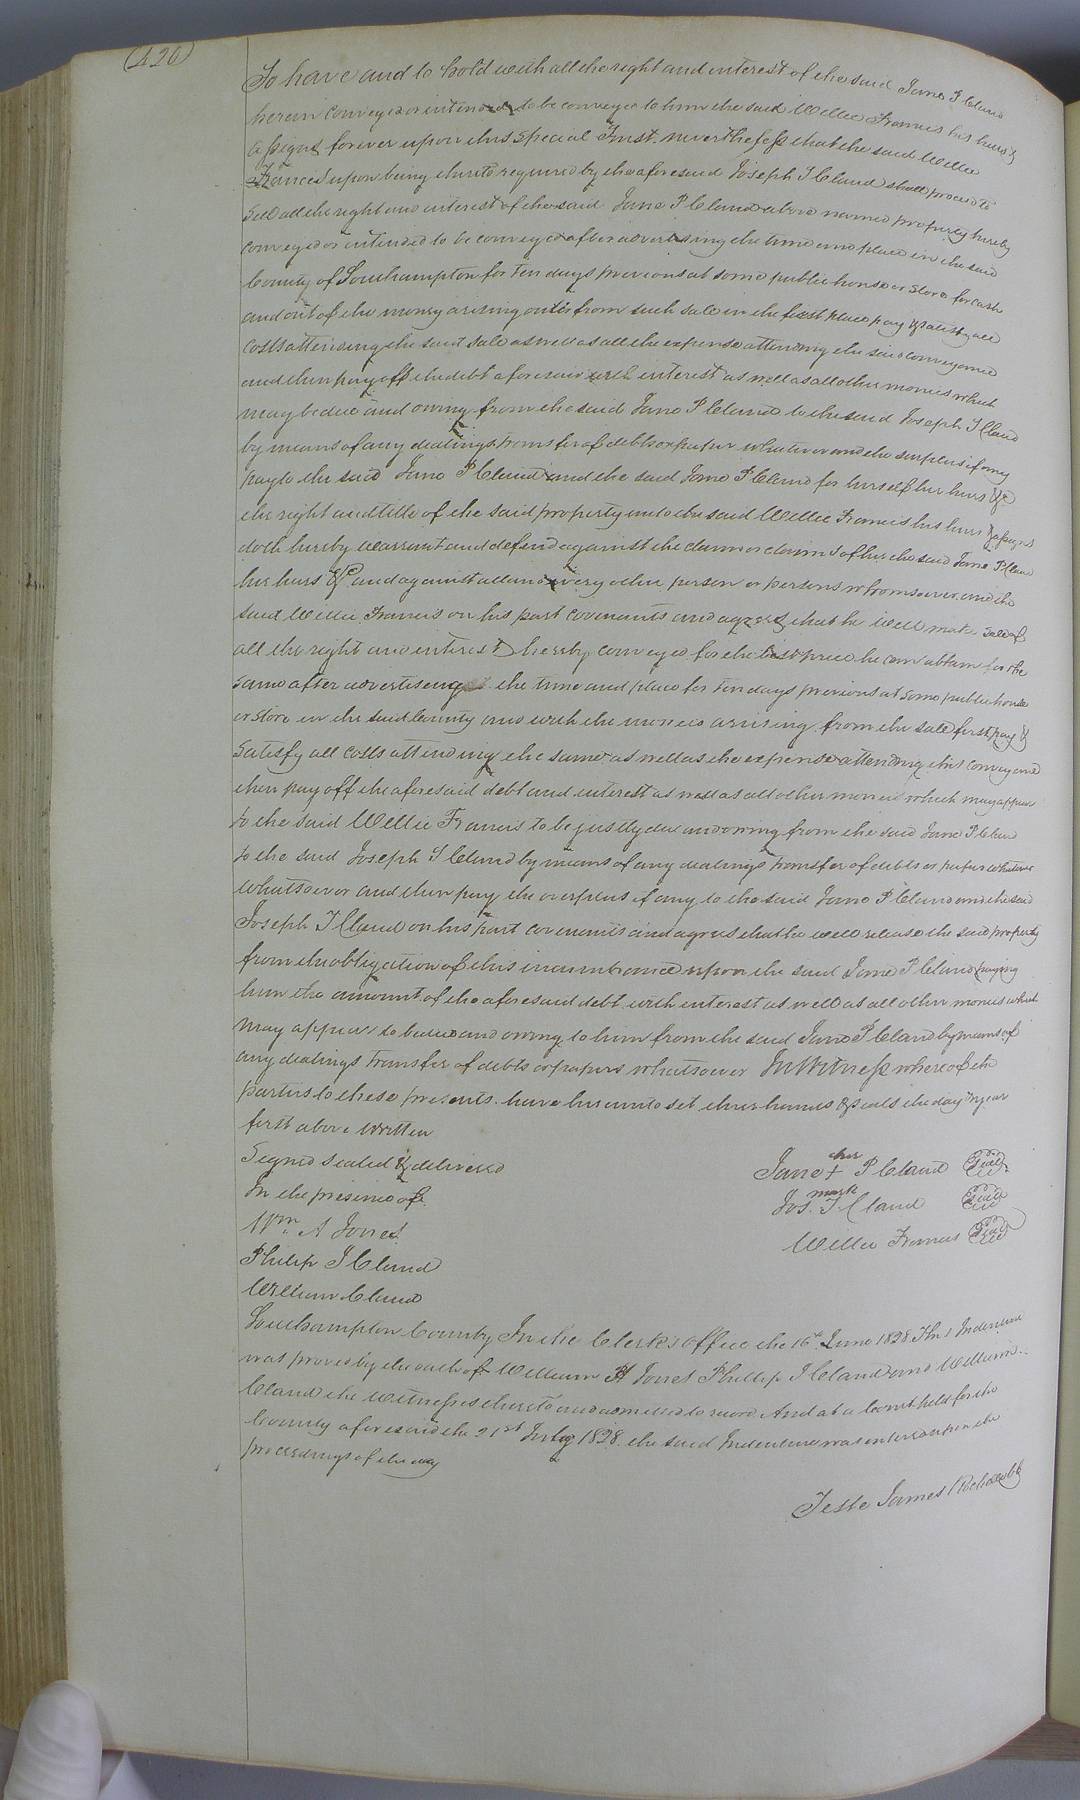 (420)
To have and to hold with all the right and interest of the said Jane P Claud
herein conveyed or intended to be conveyed to him the said Willie Francis his heirs &
assigns forever upon this special Trust nevertheless that the said Willie
Frances upon being thereto required by the aforesaid Joseph T Claud shall proceed to
sell all the right and interest of the said Jane P Claud above named property hereby
conveyed or intended to be conveyed after advertising the time and place in the said
County of Southampton for ten days previous at some public house or store for cash
and out of the money arising from such sale in the first place pay & satisfy all
costs attending the said sale as well as all the expense attending the said conveyance
and then pay off the debt aforesaid with interest as well as all other monies which
may be due and owing from the said Jane P Claud to the said Joseph T Claud
by means of any dealings transfer of debts or paper whatever and the surplus if any
pay to the said Jane P Claud and the said Jane P Claud for herself her heirs &c
the right and title of the said property unto the said Willie Francis his heirs & assigns
doth hereby warrant and defend against the claim or claims of her the said Jane P Claud
her heirs &c and against all and every other person or persons whomsoever and the
said Willie Francis on his part covenants and agrees that he will make sale of
all the right and interest hereby conveyed for the best price he can obtain for the
same after advertiseing the time and place for ten days previous at some public house
or store in the said County and with the monies arising from the sale first pay &
satisfy all costs attending the same as well as the expense attending this conveyance
then pay off the aforesaid debt and interest as well as all other monies which may appear
to the said Willie Francis to be justly due and owing from the said Jane P Claud
to the said Joseph T Claud by means of any dealings transfer of debts or papers whatever
whatsoever and then pay the overplus if any to the said Jane P Claud and the said
Joseph T Claud on his part covenants and agrees that he will release the said property
from the obligation of this incumbrance upon the said Jane P Claud paying
him the amount of the aforesaid debt with interest as well as all other monies which
may appear to be due and owing to him from the said Jane P Claud by means of
any dealings transfer of debts or papers whatsoever In Witness whereof the
parties to these presents have hereunto set their hands & seals the day & year
first above written
Signed sealed & delivered
In the presence of
Wm A Jones
Philip T Claud
William Claud
her
Jane + P Claud Seal
mark
Jos. T Claud Seal
Willie Francis Seal
Southampton County In the Clerk's office the 16th June 1828. This Indenture
was proved by the oath of William A Jones Phillip T Claud and William
Claud the witnesses thereto and admitted to record. And at a Court held for the
County aforesaid the 21st July 1828. the said Indenture was entered upon the
proceedings of the day
Teste James Rochelle Clk